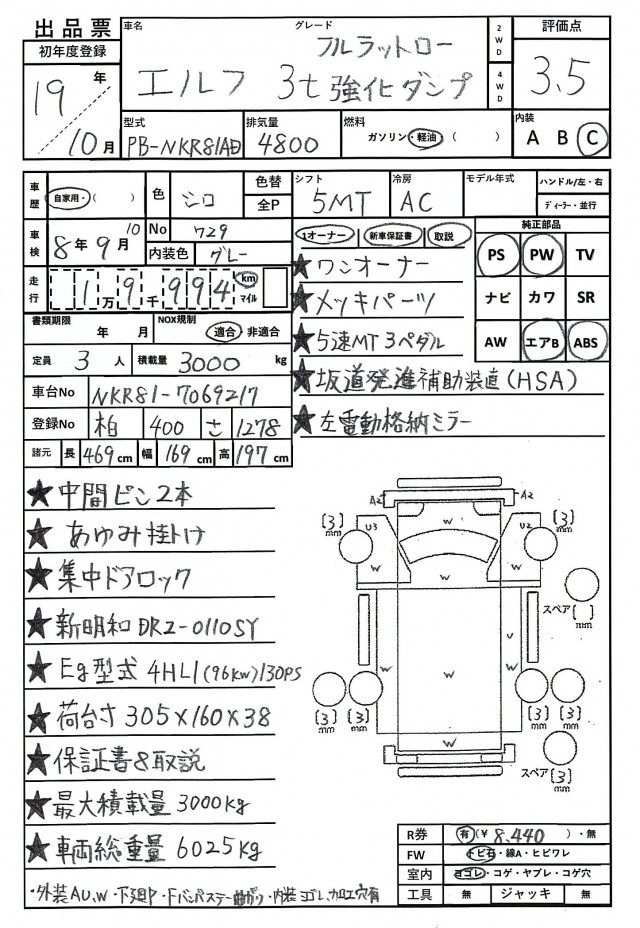 出品票
車名
グレード
2WD
4WD
評価点
初年度登録
19年
10月
エルフ 3t
フルフラットロー
強化ダンプ
3.5
型式
PB-NKR81AD
排気量
4800
燃料
ガソリン・軽油( )
内装
A B C
車歴
自家用・( )
色
シロ
色替
全P
シフト
5MT
冷房
AC
モデル年式
ハンドル/左・右
ディーラー・並行
車検
8年9月
10
No
729
内装色
グレー
1オーナー
新車保証書
取説
純正部品
PS PW TV
ナビ カワ SR
AW エアB ABS
走行
1万9千994
km
マイル
★ワンオーナー
★メッキパーツ
★5速MT 3ペダル
★坂道発進補助装置(HSA)
★左電動格納ミラー
書類期限
年 月
NOX規制
適合・非適合
定員
3人
積載量
3000kg
車台No
NKR81-7069217
登録No
柏 400 さ 1278
諸元 長 469cm 幅 169cm 高 197cm
★中間ピン2本
★あゆみ掛け
★集中ドアロック
★新明和 DR2-0110SY
★Eg型式 4HL1(96kw)130PS
★荷台寸 305×160×38
★保証書&取説
★最大積載量 3000kg
★車両総重量 6025kg
・外装AU,W・下廻P・Fバンパステー曲がり・内装ヨゴレ,加工穴有
A2 A2
W
(3)mm U3 U2 (3)mm
W W
W
スペア( )mm
U
W W
W
(3)mm (3)mm (3)mm (3)mm
W
スペア(3)mm
R券
有(¥8,440)・無
FW
トビ石・線A・ヒビワレ
室内
ヨゴレ・コゲ・ヤブレ・コゲ穴
工具 無 ジャッキ 無